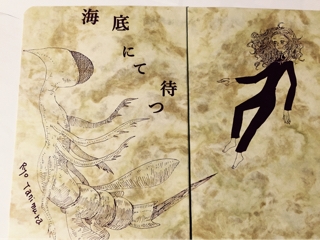 海底にて待つ
Ryo Tanimura